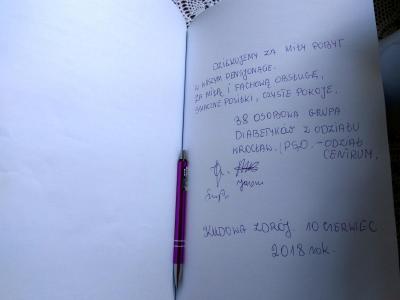 DZIĘKUJEMY ZA MIŁY POBYT
W WASZYM PENSJONACIE.
ZA MIŁĄ I FACHOWĄ OBSŁUGĘ,
SMACZNE POSIŁKI, CZYSTE POKOJE.
38 OSOBOWA GRUPA
DIABETYKÓW Z ODZIAŁU
WROCŁAW.
- ODZIAŁ
CENTRUM.
KUDOWA ZDRÓJ. 10 CZERWIEC
2018 rok.